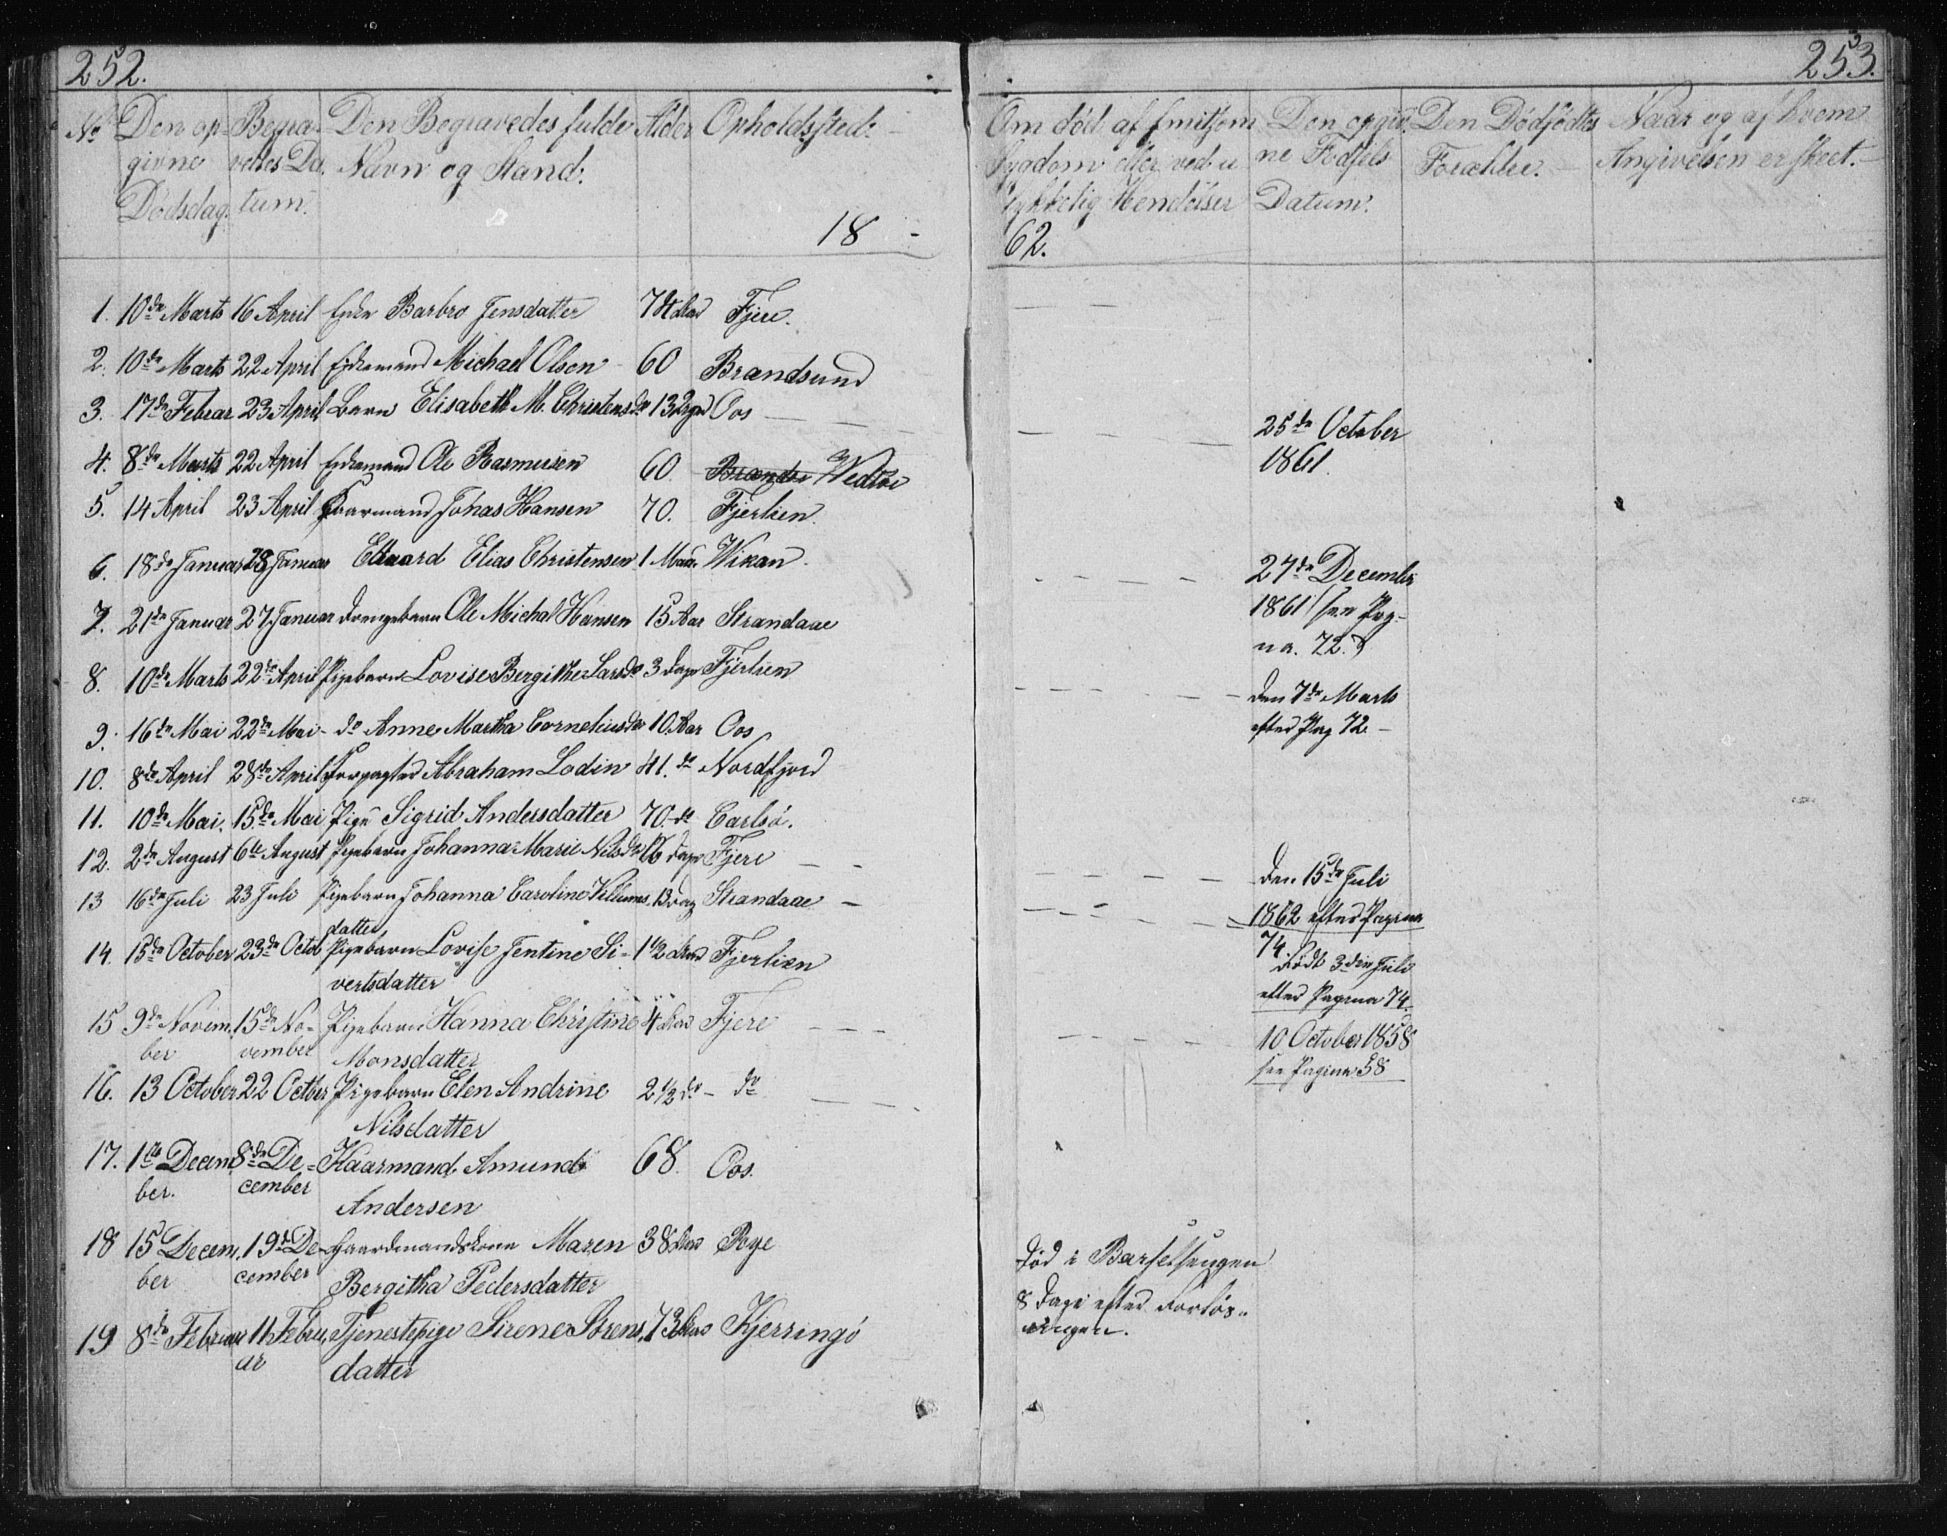 252.
253.
No Den op- Begra- Den Begravedes fulde Alder Opholdssted.
givne vedes Da- Navn og Stand.
Dødsdag. tum.
18
Om død af smitsom Den opgiv- Den Dødfødtes Naar og af hvem
Sygdom eller ved u- ne Fødsels Forældre. Angivelsen er skeet.
lykkelig Hendelser Datum.
62.
1. 10de Marts 16 April Enke Barbro Jensdatter 74 Aar Fjere.
2. 10de Marts 22 April Michael Olsen 60 Brandsund
3. 17de Februar 23 April Barn Elisabeth M. Christensdr 13 Oos
25de October
1861.
4. 8de Marts 22 April Ole Rasmussen 60 Vedtøi
5. 14 April 23 April Johas Hansen 70. Fjerlien.
6. 18de Januar 28 Januar Eduard Elias Christensen 1 Maan. Wikan.
27de December
1861 see Pag-
na. 72.
7. 21de Januar 27 Januar Drengebarn Ole Michal Hansen 15 Aar Strandaae
8. 10de Marts 22de April Pigebarn Lovise Bergithe Larsdr 3 Dage Fjerlien
Den 7de Marts
efter Pag 72 -
9. 16de Mai 22de Mai - do Anne Martha Corneliusdr 10 Aar Oos
10. 8de April 28de April Forpagter Abraham Lodin 41. do Nordfjord
11. 10de Mai. 15de Mai Pige Sigrid Andersdatter 70 do Carlsø.
12. 2de August 6te August Pigebarn Johanna Marie Nilsdr 16 Dage Fjere
Den 15de Juli
1862 efter Pagina
74.
13 16de Juli 23 Juli Pigebarn Johanna Caroline Villums- 13 Dag Strandaae
datter
Født 3die Juli
efter Pagina 74.
14. 15de October 23de Octob Pigebarn Lovise Jentine Si- 1 1/2 Aar Fjerlien
vertsdatter
15 9de Novem- 15de No- Pigebarn Hanna Christine 4 Aar Fjere
ber vember Monsdatter
10 October 1858
see Pagina 58
16. 13 October 22 Octber Pigebarn Elen Andrine 2 1/2 do - do
Nilsdatter
17. 1te Decem- 8de De- Kaarmand Amund 68. Oos.
ber. cember Andersen
18 15 Decem- 19de De- Gaardmandskone Maren 38 Aar Røe
ber cember Bergitha Pedersdatter
Død i Barselsengen
8 Dage efter Forløs-
ningen.
19 8de Februar 11 Febru- Tjenestepige Sirene Sørens- 73 Aar Kjerringø
ar datter